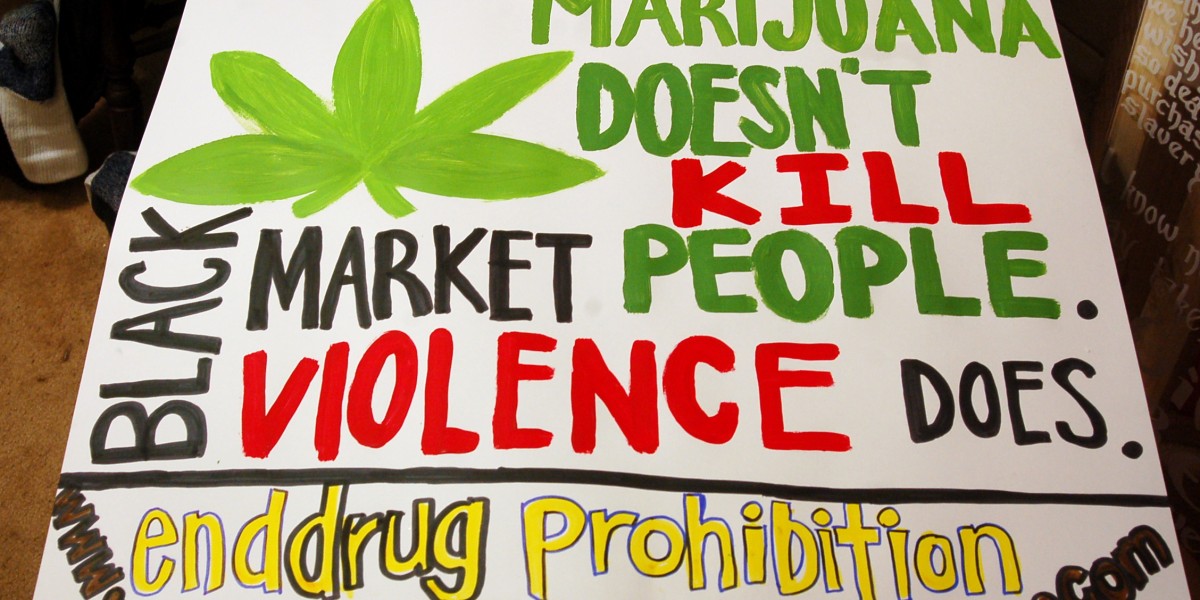 MARIJUANA
DOESN'T
KILL
PEOPLE.
BLACK MARKET
VIOLENCE DOES.
www.enddrugprohibition.com
we
wish
so
purcha-
slaver
know